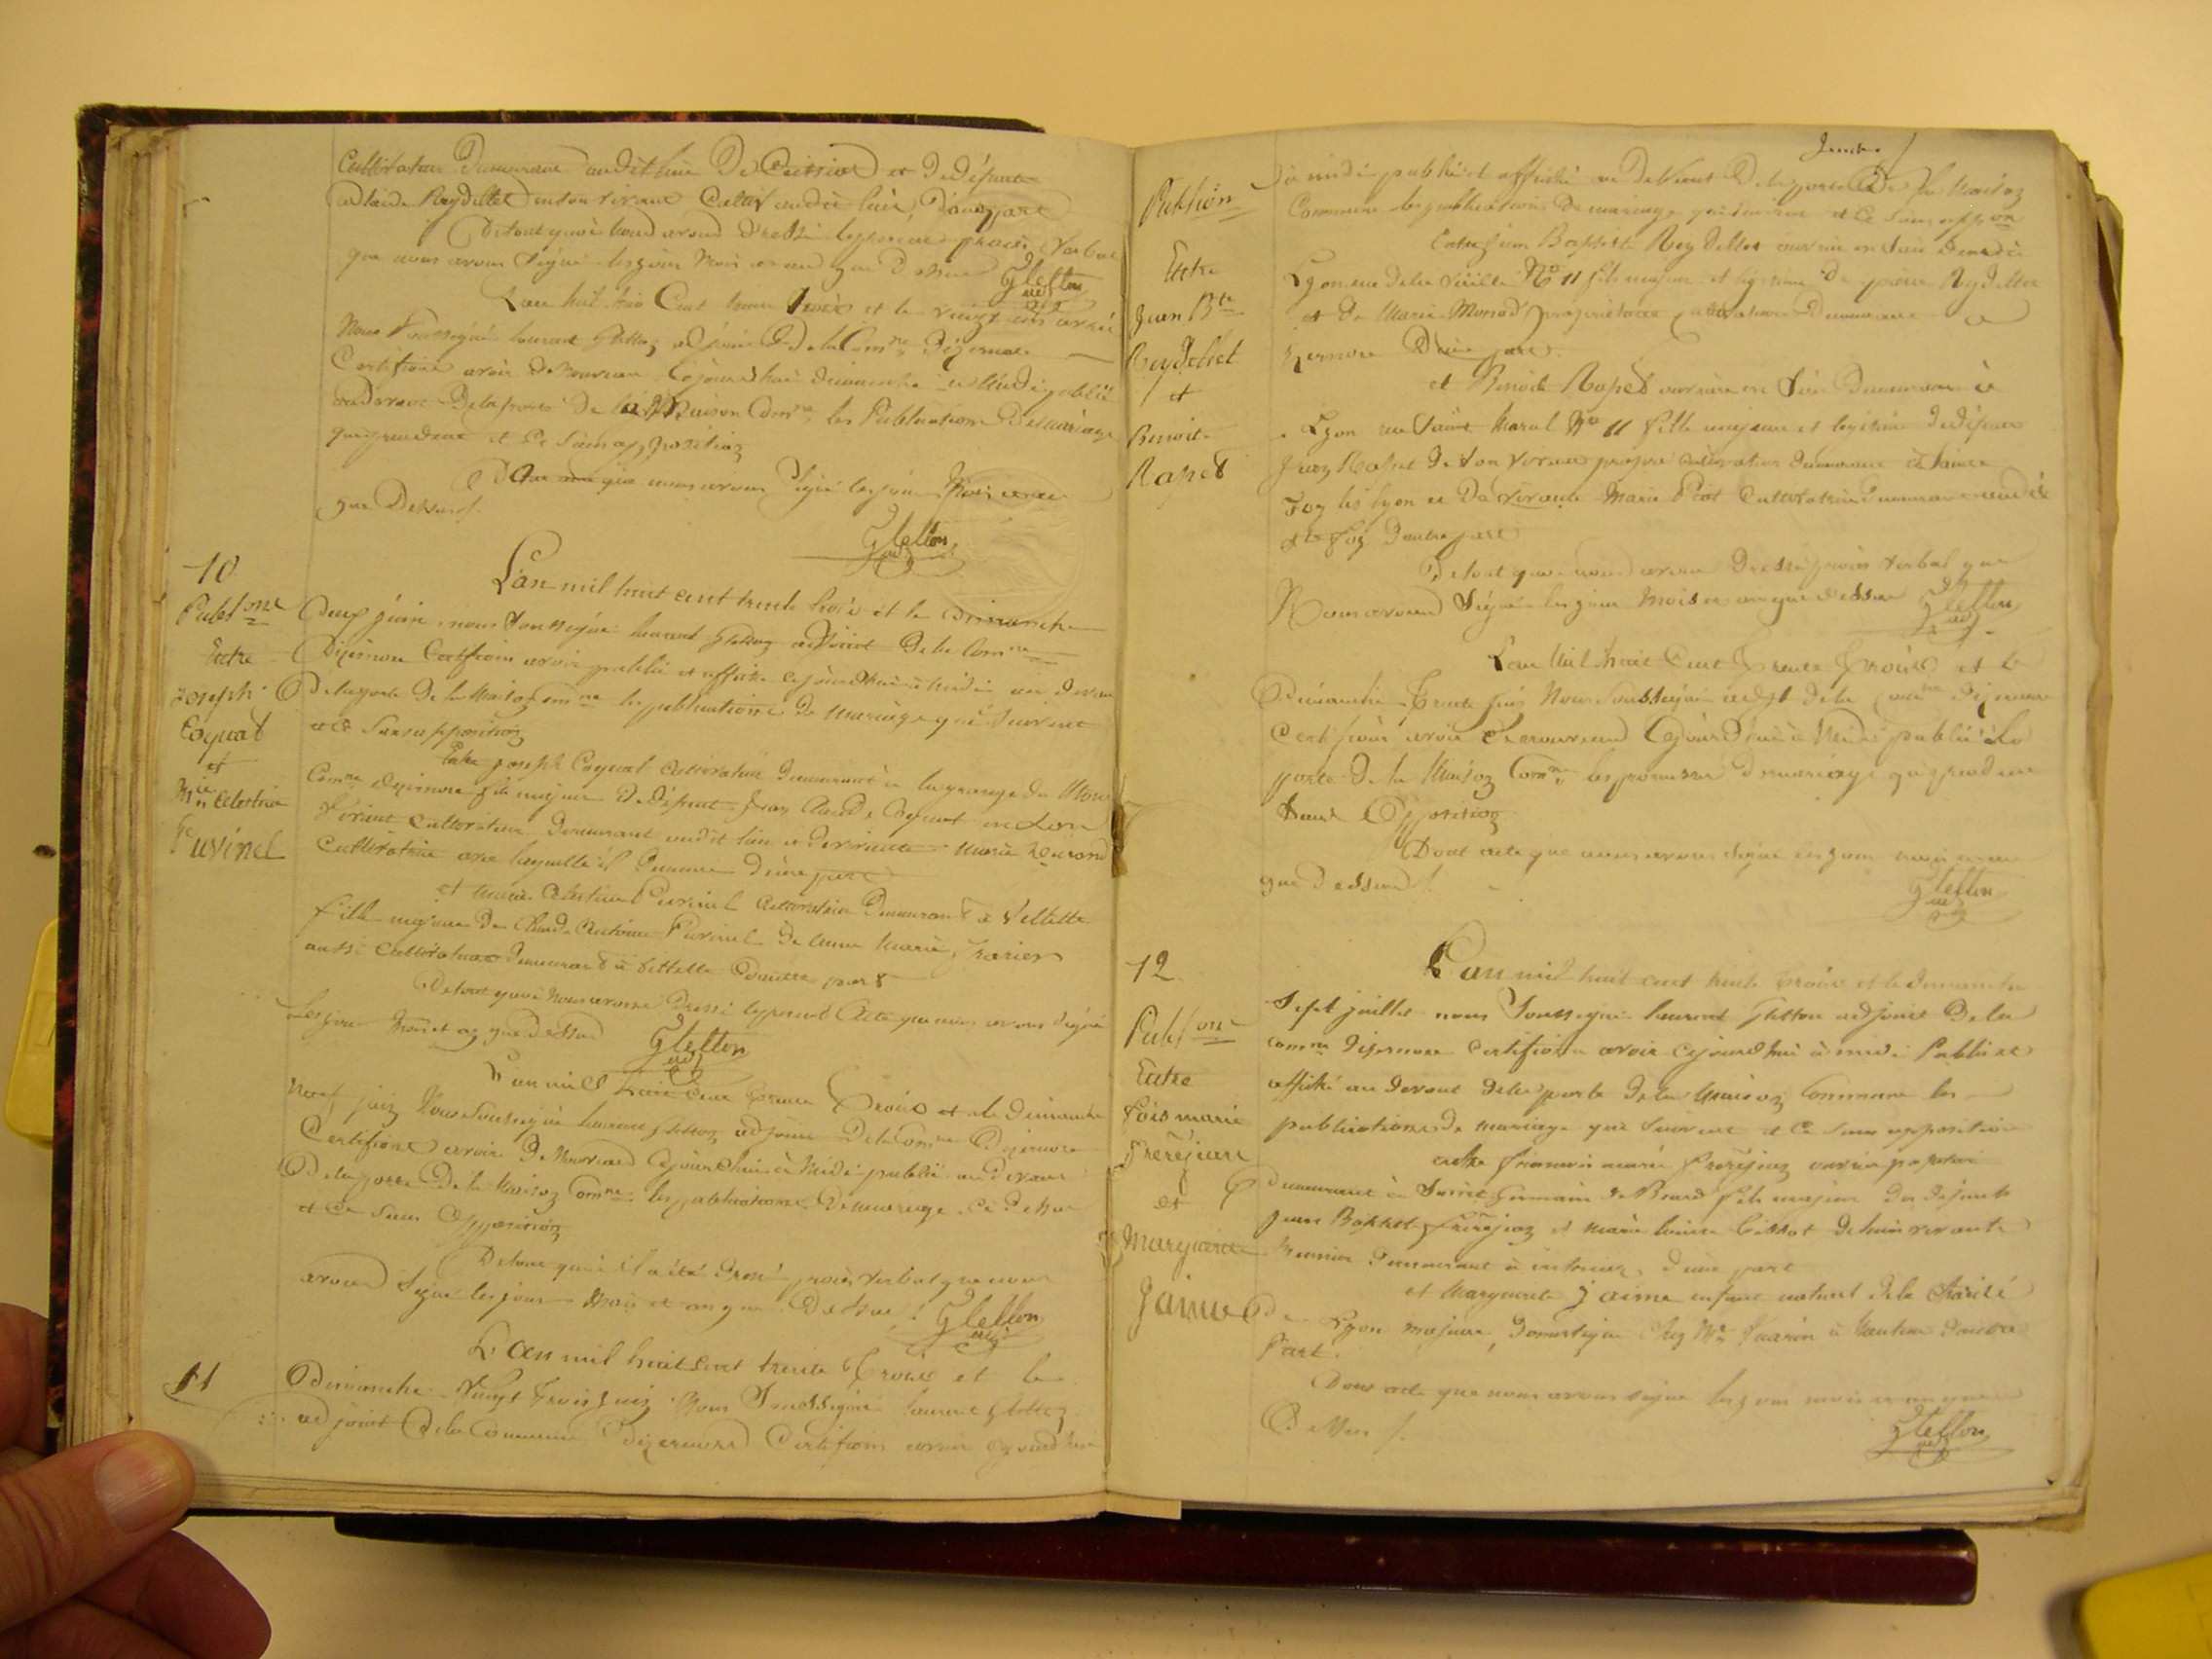 Cultivateur Demeurant audit lieu De Ceissiat et De Défunte
adlaide Reydellet en son vivant Cultiv audit lieu, D'autre part
De tout quoi nous avons Dressé le présent procès Verbal
que nous avons Signé les jour Mois et an que Dessus Gletton adj
L'an mil huit Cent trente trois et le vingt six avril
Nous Soussigné Laurent Gletton adjoint De la Com^ne Dizernore
Certifions avoir De nouveau Cejourdhui dimanche à Midi publié
au devant De la porte De la Maison Com^ne les Publications De Mariage
que Dessus et Ce Sans opposition
Dont acte que nous avons Signé les jour Mois et an
que Dessus /.
Gletton adj
10
Publ^ons
Entre
Joseph
Coquat
et
M^ie Celestine
Puvinel
L'an mil huit cent trente trois et le Dimanche
Deux juin, nous Soussigné Laurent Gletton adjoint De la Com^ne
Dizernore Certifions avoir publié et affiché cejourdhui à Midi au devant
De la porte De la Maison Com^ne les publications De Mariage qui Suivent
et Ce Sans opposition
Entre joseph Coquat Cultivateur Demeurant à la grange du
Com^ne Dizernore fils majeur De Défunt Jean Claude Coquat en Son
Vivant Cultivateur Demeurant audit lieu et De vivante Marie
Cultivatrice avec laquelle il Demeure D'une part
et Marie Celestine Puvinel Cultivatrice Demeurant à Villette
fille majeure De Claude Antoine Puvinel De Anne Marie
aussi Cultivateurs Demeurant à Villette D'autre part
De tout quoi Nous avons Dressé le présent Acte que nous avons Signé
Les jour Mois et an que Dessus Gletton adj
L'an mil huit Cent trente Trois et le Dimanche
Neuf juin Nous Soussigné Laurent Gletton adjoint De la Com^ne Dizernore
Certifions avoir De Nouveau Cejourdhui à Midi publié au Devant
De la porte De la Maison Com^ne les publications De mariage Ci Dessus
et Ce Sans Opposition
De tout quoi il a été Dressé procès Verbal que nous
avons Signé les jour Mois et an que Dessus /. Gletton adj
11
L'an mil huit Cent trente Trois et le
Dimanche Vingt Trois juin Nous Soussigné Laurent Gletton
adjoint De la Commune Dizernore Certifions avoir Cejourdhui
Publion
Entre
Jean B^te
Reydellet
et
Benoite
Rapet
à midi publié et affiché au Devant De la porte De la Maison
Commune les publications De mariage qui Suivent et Ce Sans opp^on
Entre Jean Baptiste Reydellet ouvrier en Soie Dem à
Lyon rue De la Vieille N° 11 fils majeur et légitime De pierre Reydellet
et De Marie Monod propriétaires Cultivateurs Demeurant à
Izernore D'une part
et Benoite Rapet ouvrière en Soie Demeurant à
Lyon rue Saint Marcel N° 11 fille majeure et légitime De Défunt
Rapet De Son Vivant propre Cultivateur Demeurant à Sainte
Foy lès Lyon et De Vivante Marie Piot Cultivatrice Demeurant audit
S^te Foy D'autre part
De tout quoi nous avons Dressé procès Verbal que
Nous avons Signé les jour Mois et an que Dessus Gletton adj
L'an Mil huit Cent Trente Trois et le
Dimanche Trente juin Nous Soussigné adjt De la Com^ne Dizernore
Certifions avoir De nouveau Cejourdhui à Midi publié à la
porte De la Maison Com^ne les promesses De mariage que Dessus
Sans Opposition
Dont acte que nous avons Signé les jour mois et an
que Dessus /.
Gletton adj
12
Publ^ons
Entre
Fois marie
Frerejean
et
Marguerite
Jaime
L'an mil huit cent trente trois et le Dimanche
Sept juillet nous Soussigné Laurent Gletton adjoint De la
Com^ne Dizernore Certifions avoir Cejourdhui à midi Publié et
affiché au devant De la porte De la Maison Commune les
publications De mariage qui Suivent et Ce Sans opposition
entre francois marie frerejean ouvrier papetier
Demeurant à Saint Germain De Beard fils majeur De Défunt
Jean Baptiste Frerejean et Marie Louise De lui vivante
Demeurant à D'une part
et Marguerite Jaime enfant naturel De la Charité
De Lyon majeure, Domestique Chez M^r à Nantua D'autre
Part.
Dont acte que nous avons signé les jour mois et an que
Dessus /.
Gletton adj